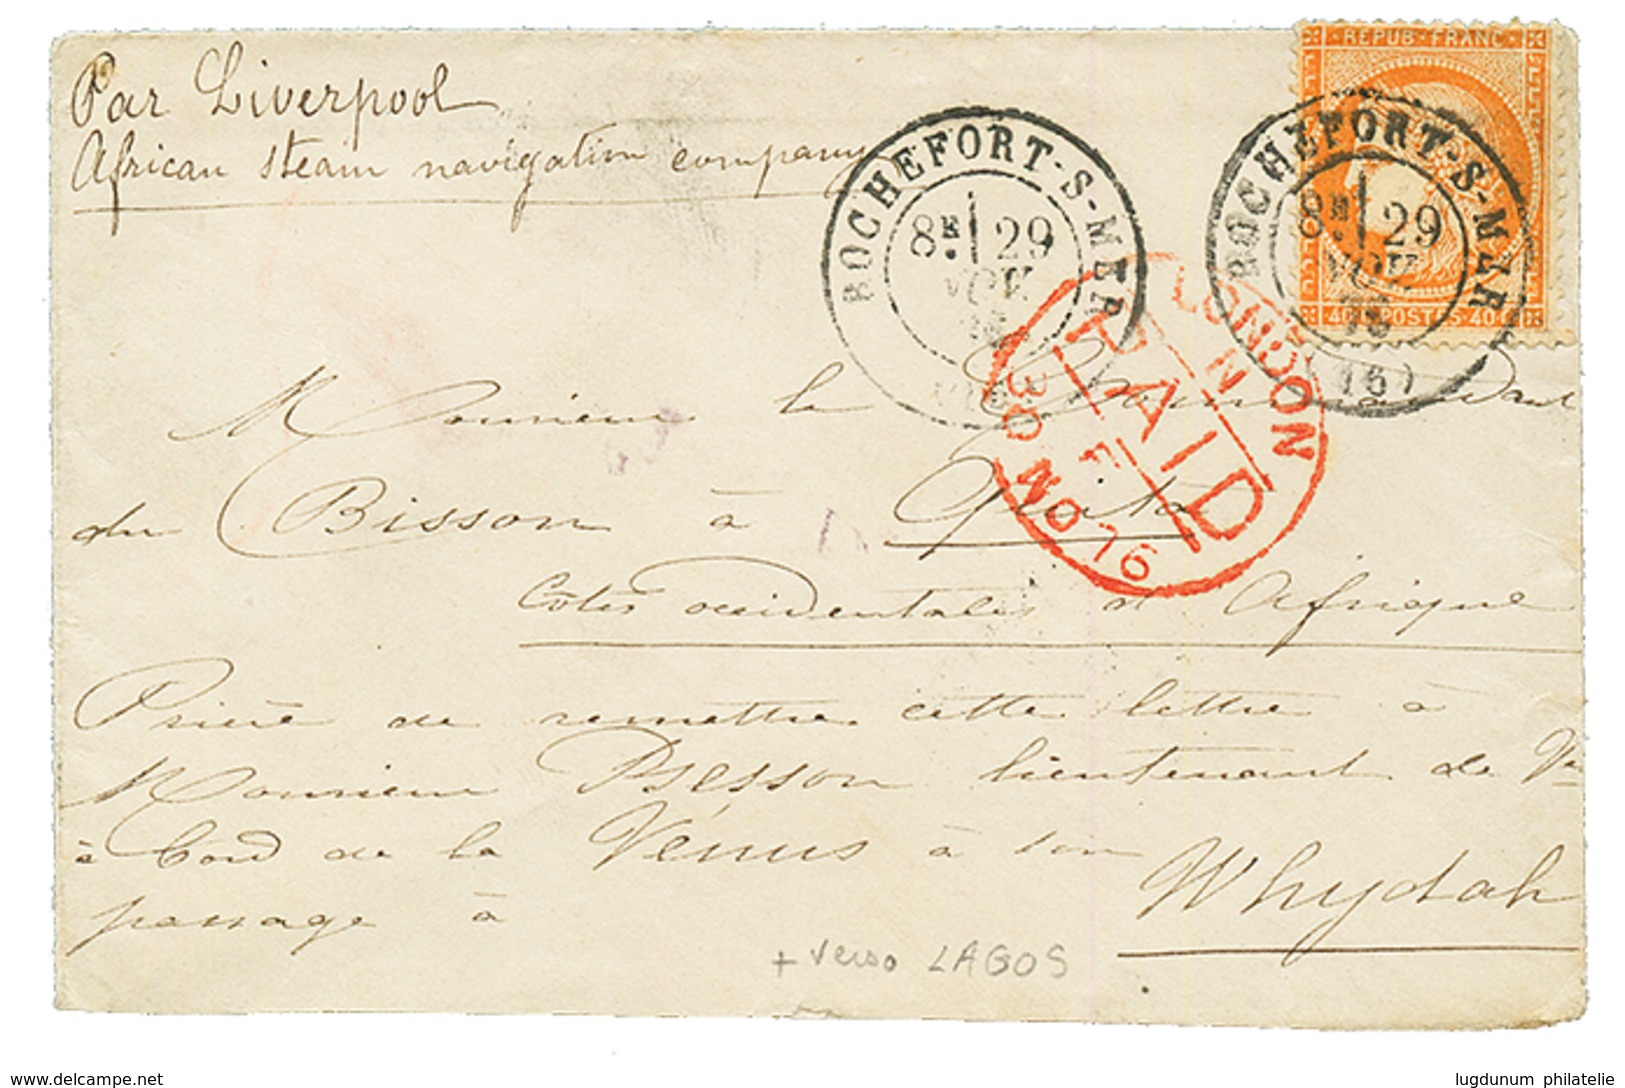 Par Liverpool
African steam navigation company
REPUB·FRANC
40 C POSTES 40 C
ROCHEFORT-S-MER
8E 29
NOV
ROCHEFORT-S-MER
8E 29
NOV
76
(16)
LONDON
PAID
30 NO 76
Monsieur le Commandant
du Bisson à
Côtes occidentales d'Afrique
Prière de remettre cette lettre à
Monsieur Besson lieutenant de Vau
à bord de la Vénus à son
passage à Whydah
+ verso LAGOS
delcampe.net
lugdunum philatelie